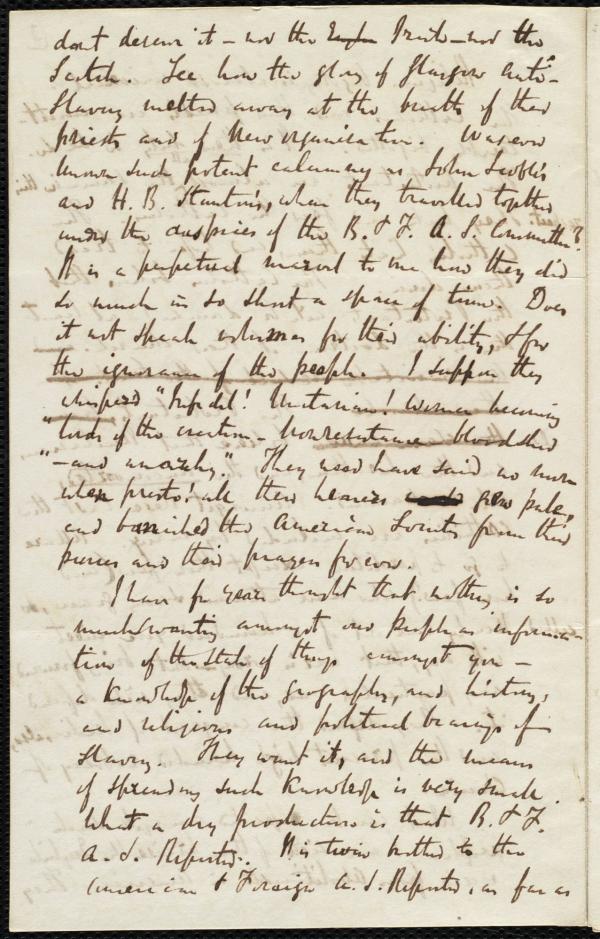 dont deserve it – nor the Irish – nor the
Scotch. See how the glory of Glasgow Anti-
Slavery melted away at the breath of their
priests and of New organisation. Was ever
known such potent calumny as John Scoble's
and H. B. Stanton's, when they travelled together
under the auspices of the B. & F. A. S. Committee?
It is a perpetual marvel to me how they did
so much in so short a space of time. Does
it not speak volumes for their ability, & for
the ignorance of the people. I suppose they
whisperd "Infidel! Unitarian! women becoming
"lords of the creation – Nonresistance – bloodshed
"– and anarchy." They need have said no more
when presto! all their hearers grew pale,
and banished the American Society from their
purses and their prayers for ever.
I have for years thought that nothing is so
much wanting amongst our people as informa-
tion of the state of things amongst you –
a knowledge of the geography, and history,
and religious and political bearings of
slavery. They want it, and the means
of spreading such knowledge is very small.
What a dry production is that B. & F.
A. S. Reporter. It is twin brother to the
American & Foreign A. S. Reporter, as far as